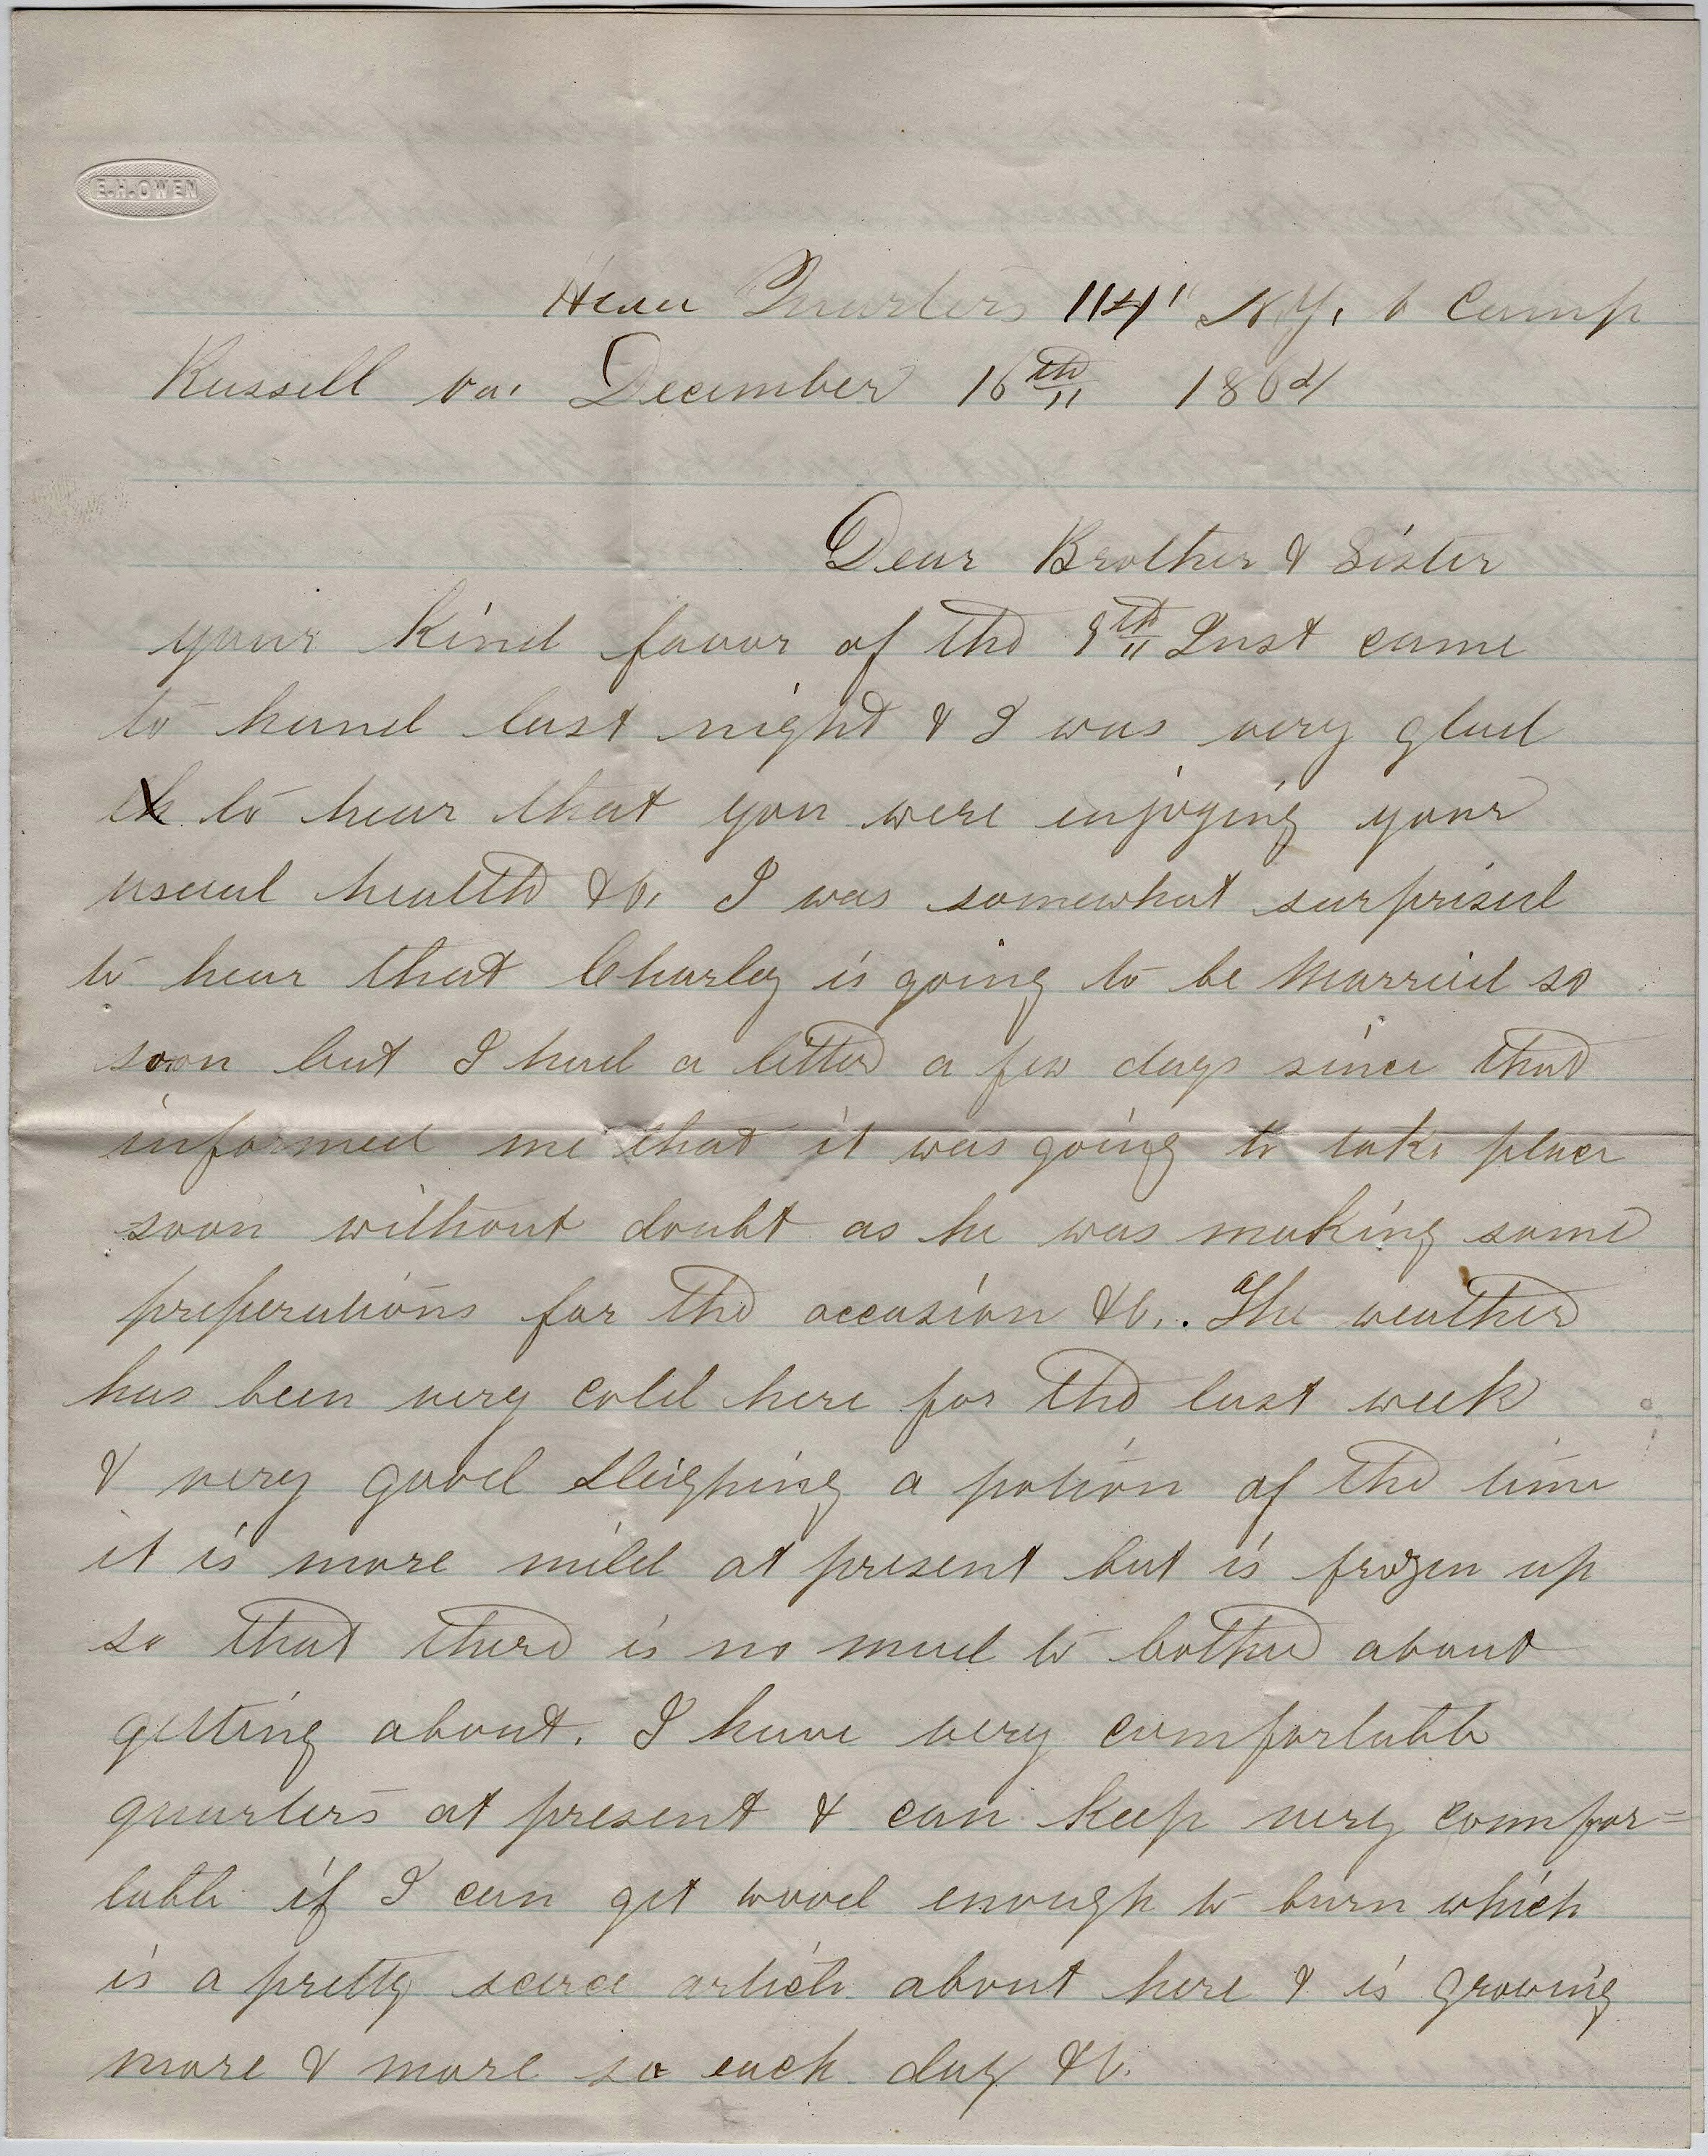 E.H.OWEN
Head Quarters 114" N.Y. V Camp
Russell Va. December 16th 1864
Dear Brother & Sister
your Kind favor of the 9th Inst came
to hand last night & I was very glad
th to hear that you were enjoying your
usual health &c. I was somewhat surprised
to hear that Charley is going to be Married so
soon but I had a letter a few days since that
informed me that it was going to take place
soon without doubt as he was making some
preperations for the occasion &c.. The weather
has been very cold here for the last week
& very good sleighing a potion of the time
it is more mild at present but is frozen up
so that there is no mud to bother about
getting about. I have very comfortable
quarters at present & can keep very comfor=
table if I can get wood enough to burn which
is a pretty scarce article about here & is growing
more & more so each day &c.